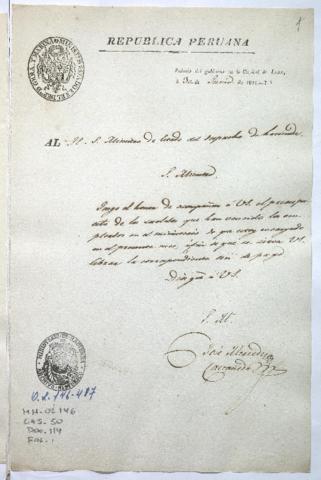 1
REPUBLICA PERUANA
Palacio del gobierno en la Capital de Lima,
á 30 de de 182
AL H. S. Ministro de Estado del despacho de hacienda
S. Ministro
Tengo el honor de acompañar á US. el presupu-
esto de los sueldos que han vencido los em-
pleados en el ministerio de que estoy encargado
en el presente mes, á fin de que se sirva US.
librar la correspondiente orn. de pago
Dios gue. á US.
S. M.
José
O.L. 146-487
MH-OL146
CAJ. 50
DOC. 114
FOL. 1